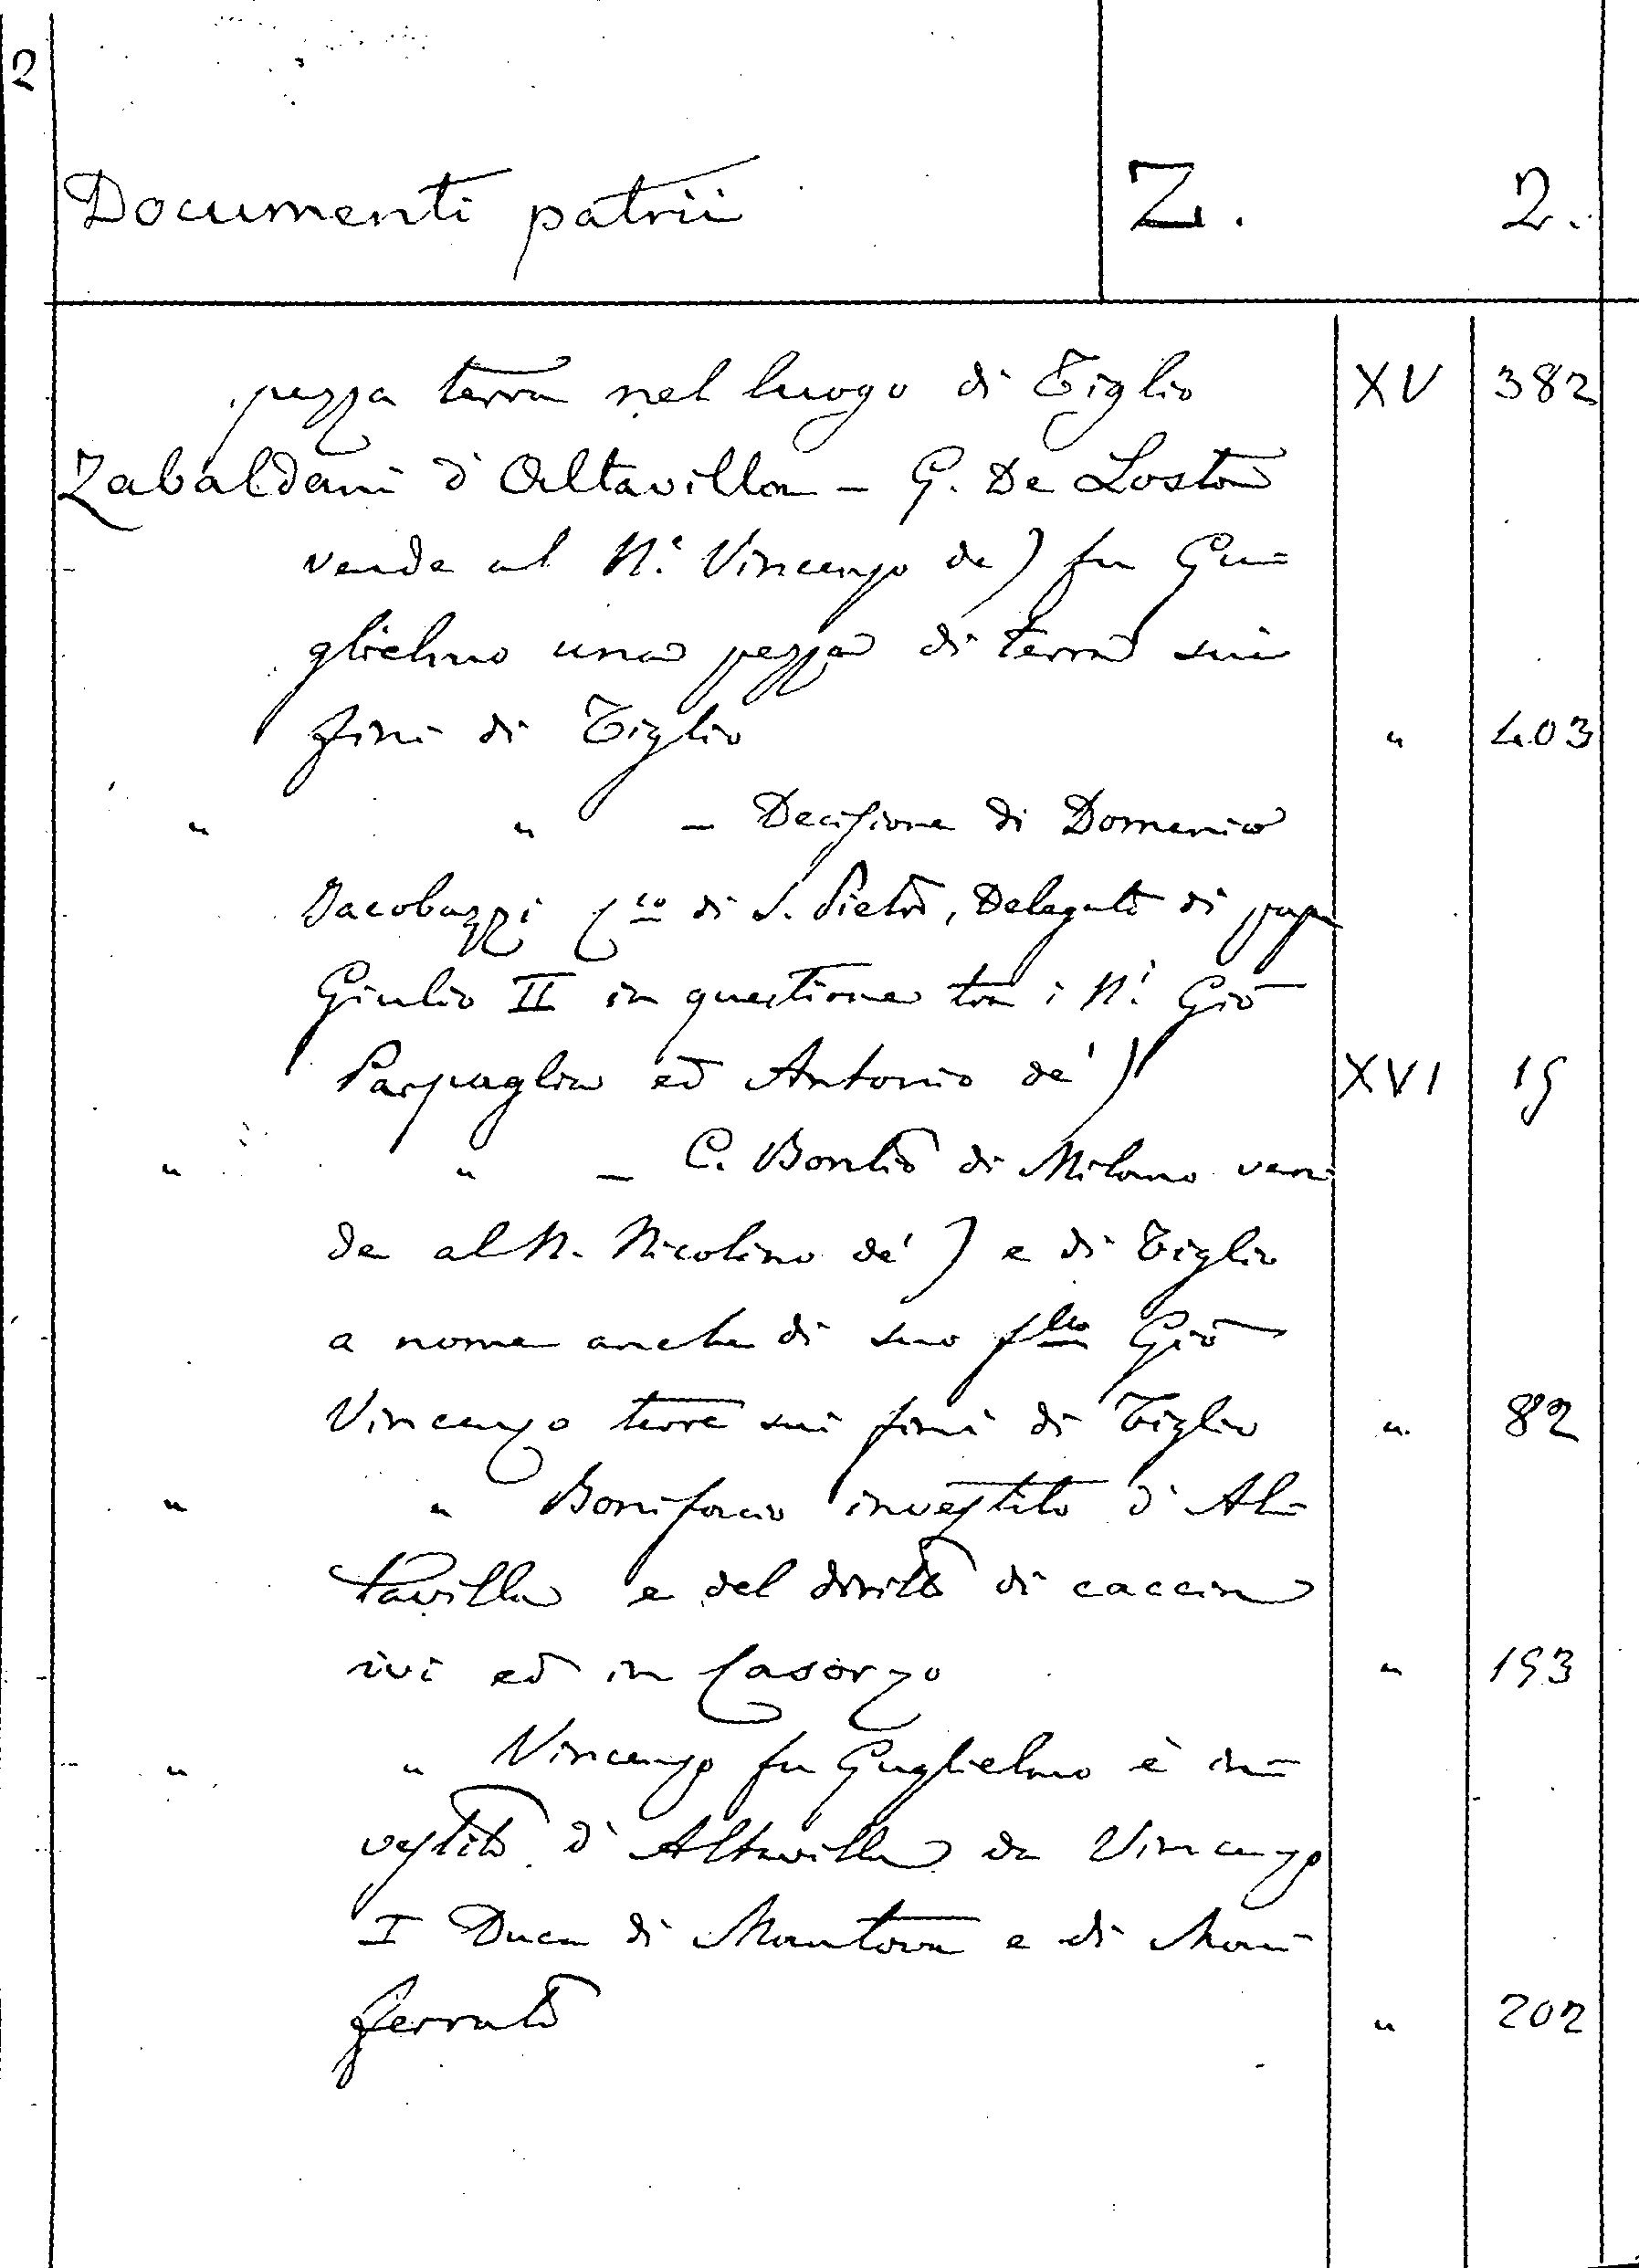 2
Documenti patrii Z. 2.
pezza terra nel luogo di Tiglio XV 382
Zabaldani d'Altavilla - G. De Losto
vende al N.e Vincenzo de) fu Gu=
glielmo una pezza di terra sui
fini di Tiglio " 403
" " - Decisione di Domenico
Jacobazzi Cco di S. Pietro, Delegato di papa
Giulio II in questione tra i N.i Gio
Parpaglia ed Antonio de') XVI 15
" " - C. di Milano ven=
de al N. Nicolino de') e di Tiglio
a nome anche di suo fllo Gio
Vincenzo terre sui fini di Tiglio " 82
" " Bonifacio investito d'Al=
tavilla e del diritto di caccia
ivi ed in Casorzo " 193
" " Vincenzo fu Guglielmo è in=
vestito d'Altavilla da Vincenzo
I Duca di Mantova e di Mon=
ferrato " 202